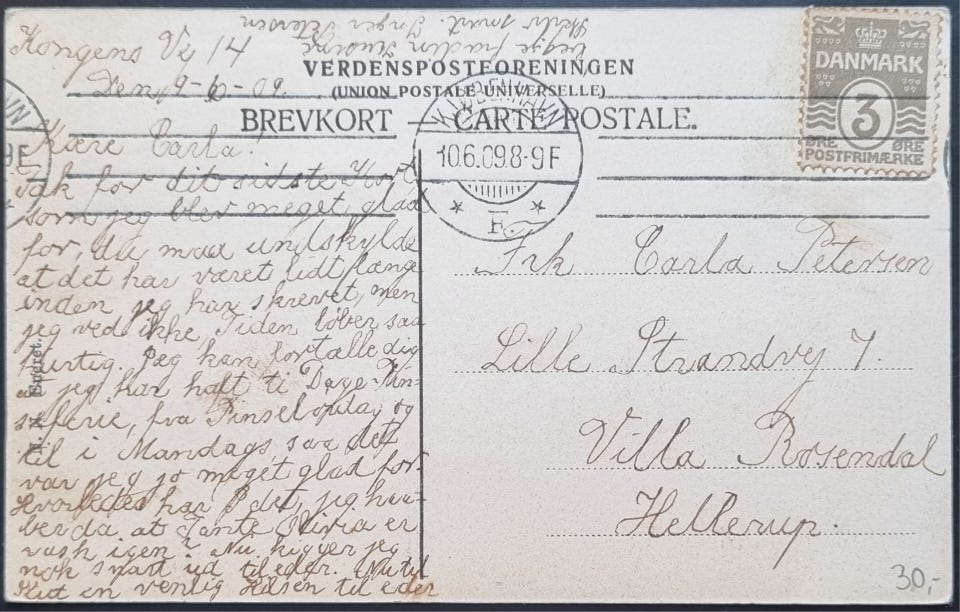 Kongens Vej 14
Den 9-6-09.
Kære Carla!
Tak for dit sidste Kort
som jeg blev meget glad
for, du maa undskylde
at det har været lidt længe
inden jeg har skrevet, men
jeg ved ikke, Tiden løber saa
hurtig. Jeg kan fortælle dig
at jeg har haft ti Dage Pin-
seferie, fra Pinselørdag og
til i Mandags, saa det
var jeg jo meget glad for.
Hvorledes har I det, jeg haa-
ber da at Tante Olivia er
rask igen? Nu kigger jeg
nok snart ud til eder. Nu til
Slut en venlig Hilsen til eder
fra din Kusine
Inger Petersen
Skriv snart.
VERDENSPOSTFORENINGEN
(UNION POSTALE UNIVERSELLE)
BREVKORT — CARTE POSTALE.
KJØBENHAVN
10.6.09.8-9F
* F. *
DANMARK
3
ØRE ØRE
POSTFRIMÆRKE
Frk Carla Petersen
Lille Strandvej 7.
Villa Rosendal
Hellerup.
Eneret.
30,-